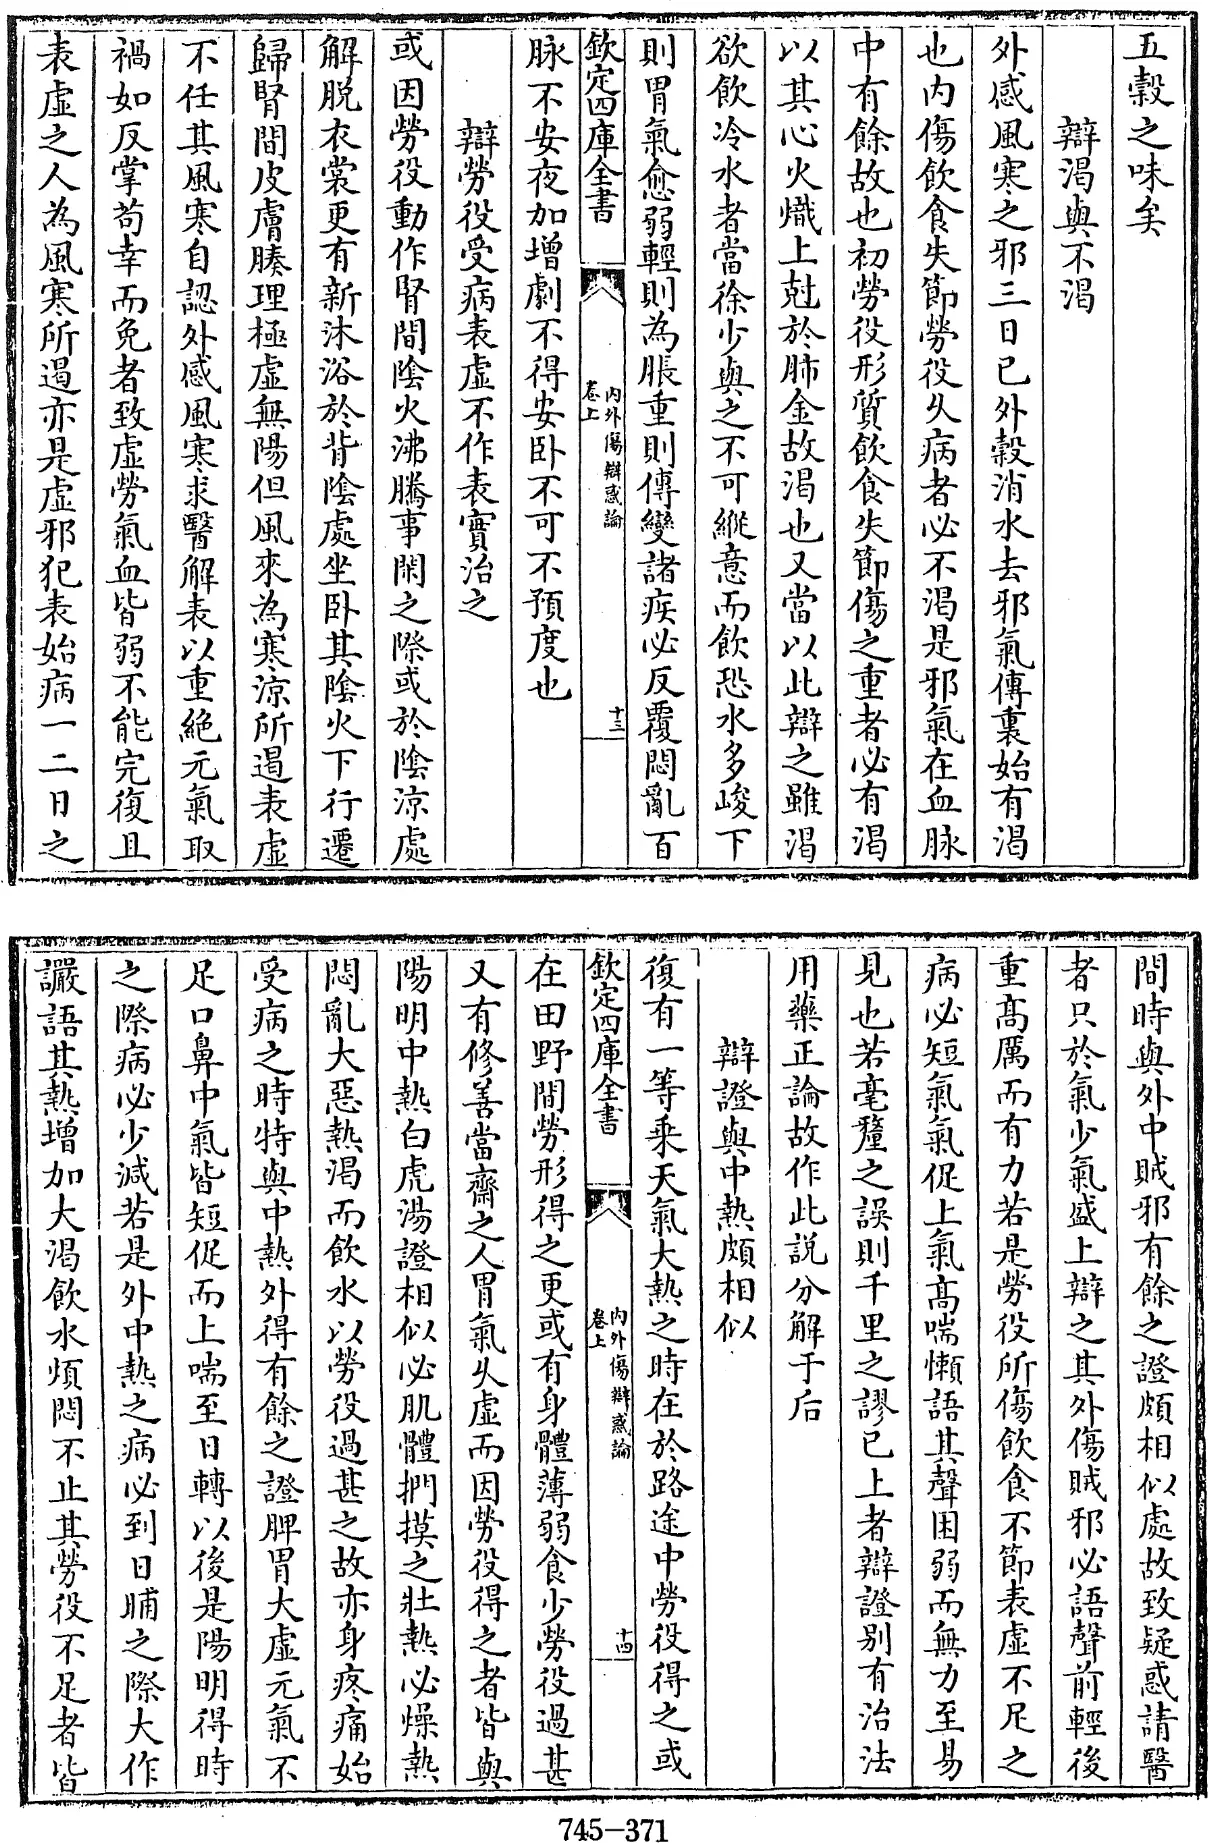 五穀之味矣
辯渴與不渴
外感風寒之邪三日已外穀消水去邪氣傳裏始有渴
也内傷飲食失節勞役久病者必不渴是邪氣在血脉
中有餘故也初勞役形質飲食失節傷之重者必有渴
以其心火熾上尅於肺金故渴也又當以此辯之雖渴
欲飲冷水者當徐少與之不可縱意而飲恐水多峻下
則胃氣愈弱輕則為脹重則傳變諸疾必反覆悶亂百
欽定四庫全書
内外傷辯惑論
卷上
十三
脉不安夜加增劇不得安卧不可不預度也
辯勞役受病表虚不作表實治之
或因勞役動作腎間陰火沸騰事閑之際或於陰涼處
解脱衣裳更有新沐浴於背陰處坐卧其陰火下行還
歸腎間皮膚腠理極虚無陽但風來為寒涼所遏表虚
不任其風寒自認外感風寒求醫解表以重絶元氣取
禍如反掌苟幸而免者致虚勞氣血皆弱不能完復且
表虚之人為風寒所遏亦是虚邪犯表始病一二日之
間時與外中賊邪有餘之證頗相似處故致疑惑請醫
者只於氣少氣盛上辯之其外傷賊邪必語聲前輕後
重高厲而有力若是勞役所傷飲食不節表虚不足之
病必短氣氣促上氣高喘懶語其聲困弱而無力至易
見也若毫釐之誤則千里之謬已上者辯證别有治法
用藥正論故作此説分解于后
辯證與中熱頗相似
復有一等乘天氣大熱之時在於路途中勞役得之或
欽定四庫全書
内外傷辯惑論
卷上
十四
在田野間勞形得之更或有身體薄弱食少勞役過甚
又有修善當齋之人胃氣久虚而因勞役得之者皆與
陽明中熱白虎湯證相似必肌體捫摸之壯熱必燥熱
悶亂大惡熱渴而飲水以勞役過甚之故亦身疼痛始
受病之時特與中熱外得有餘之證脾胃大虚元氣不
足口鼻中氣皆短促而上喘至日轉以後是陽明得時
之際病必少減若是外中熱之病必到日晡之際大作
讝語其熱增加大渴飲水煩悶不止其勞役不足者皆
745-371